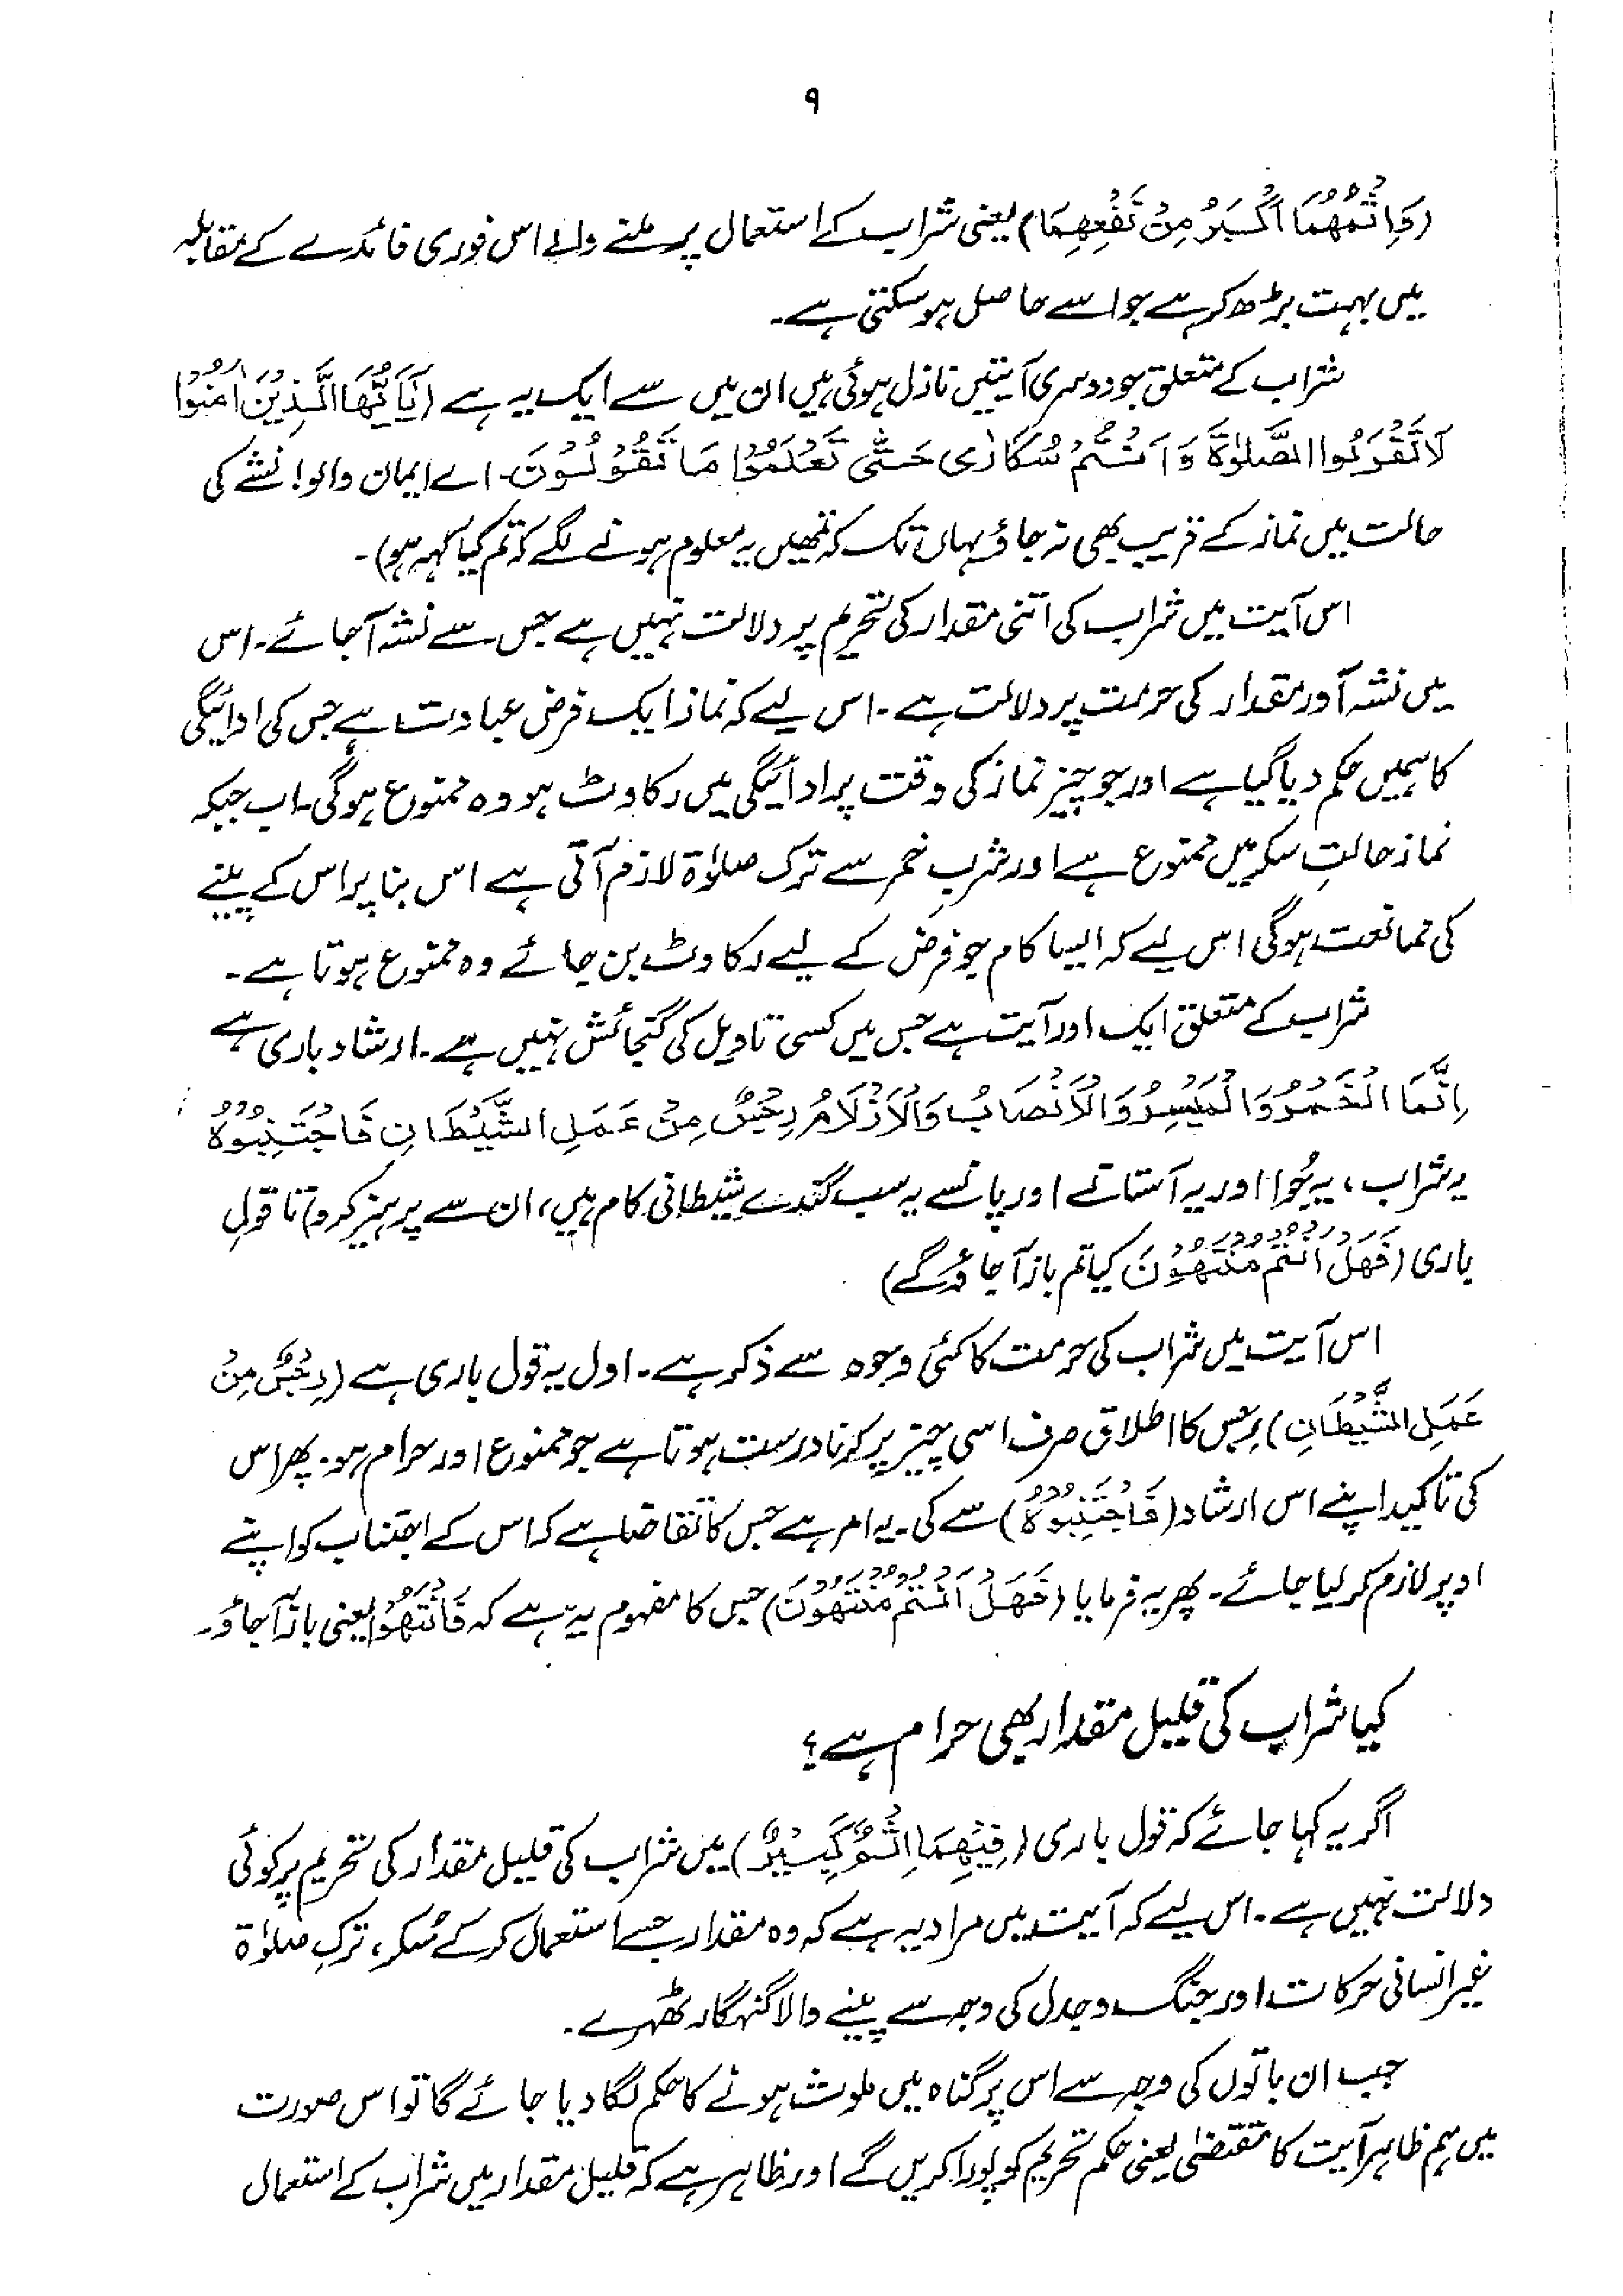 ۹
(وَاِثْمُهُمَا اَكْبَرُ مِنْ نَفْعِهِمَا) یعنی شراب کے استعمال پر ملنے والے اس فوری فائدے کے مقابلہ
میں بہت بڑھ کر ہے جو اسے حاصل ہو سکتی ہے۔
شراب کے متعلق جو دوسری آیتیں نازل ہوئی ہیں ان میں سے ایک یہ ہے (يَاَيُّهَا الَّذِيْنَ اٰمَنُوْا
لَا تَقْرَبُوا الصَّلٰوةَ وَاَنْتُمْ سُكَارٰى حَتّٰى تَعْلَمُوْا مَا تَقُوْلُوْنَ۔ اے ایمان والو! نشے کی
حالت میں نماز کے قریب بھی نہ جاؤ یہاں تک کہ تمھیں یہ معلوم ہونے لگے کہ تم کیا کہہ ہو)۔
اس آیت میں شراب کی اتنی مقدار کی تحریم پر دلالت نہیں ہے جس سے نشہ آجائے۔ اس
میں نشہ آور مقدار کی حرمت پر دلالت ہے۔ اس لیے کہ نماز ایک فرض عبادت ہے جس کی ادائیگی
کا ہمیں حکم دیا گیا ہے اور جو چیز نماز کی وقت پر ادائیگی میں رکاوٹ ہو وہ ممنوع ہوگی۔ اب جبکہ
نماز حالتِ سکر میں ممنوع ہے اور شربِ خمر سے ترک صلوٰۃ لازم آتی ہے اس بنا پر اس کے پینے
کی ممانعت ہوگی اس لیے کہ ایسا کام جو فرض کے لیے رکاوٹ بن جائے وہ ممنوع ہوتا ہے۔
شراب کے متعلق ایک اور آیت ہے جس میں کسی تاویل کی گنجائش نہیں ہے۔ ارشاد باری ہے
اِنَّمَا الْخَمْرُ وَالْمَيْسِرُ وَالْاَنْصَابُ وَالْاَزْلَامُ رِجْسٌ مِنْ عَمَلِ الشَّيْطَانِ فَاجْتَنِبُوْهُ
یہ شراب، یہ جُوا اور یہ آستانے اور پانسے یہ سب گندے شیطانی کام ہیں، ان سے پرہیز کرو) تا قولِ
باری (فَهَلْ اَنْتُمْ مُنْتَهُوْنَ کیا تم باز آجاؤ گے)
اس آیت میں شراب کی حرمت کا کئی وجوہ سے ذکر ہے۔ اول یہ قول باری ہے (رِجْسٌ مِنْ
عَمَلِ الشَّيْطَانِ) رجس کا اطلاق صرف اسی چیز پر کرنا درست ہوتا ہے جو ممنوع اور حرام ہو۔ پھر اس
کی تاکید اپنے اس ارشاد (فَاجْتَنِبُوْهُ) سے کی۔ یہ امر ہے جس کا تقاضا ہے کہ اس کے اجتناب کو اپنے
اوپر لازم کر لیا جائے۔ پھر یہ فرمایا (فَهَلْ اَنْتُمْ مُنْتَهُوْنَ) جس کا مفہوم یہ ہے کہ فَانْتَهُوْا یعنی باز آجاؤ۔
کیا شراب کی قلیل مقدار بھی حرام ہے؟
اگر یہ کہا جائے کہ قول باری (فِيْهِمَا اِثْمٌ كَبِيْرٌ) میں شراب کی قلیل مقدار کی تحریم پر کوئی
دلالت نہیں ہے۔ اس لیے کہ آیت میں مراد یہ ہے کہ وہ مقدار جسے استعمال کر کے سُکر، ترکِ صلوٰۃ
غیر انسانی حرکات اور جنگ وجدل کی وجہ سے پینے والا گنہگار ٹھہرے۔
جب ان باتوں کی وجہ سے اس پر گناہ میں ملوث ہونے کا حکم لگا دیا جائے گا تو اس صورت
میں ہم ظاہر آیت کا مقتضیٰ یعنی حکم تحریم کو پورا کریں گے اور ظاہر ہے کہ قلیل مقدار میں شراب کے استعمال